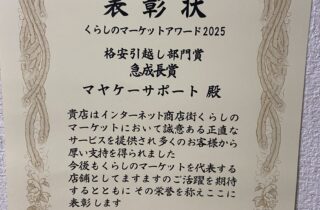 表彰状
くらしのマーケットアワード2025
格安引越し部門賞
急成長賞
マヤケーサポート 殿
貴店はインターネット商店街くらしの
マーケットにおいて誠意ある正直な
サービスを提供され多くのお客様から
厚い支持を得られました
今後もくらしのマーケットを代表する
店舗としてますますのご活躍を期待
するとともに その栄誉を称えここに
表彰します